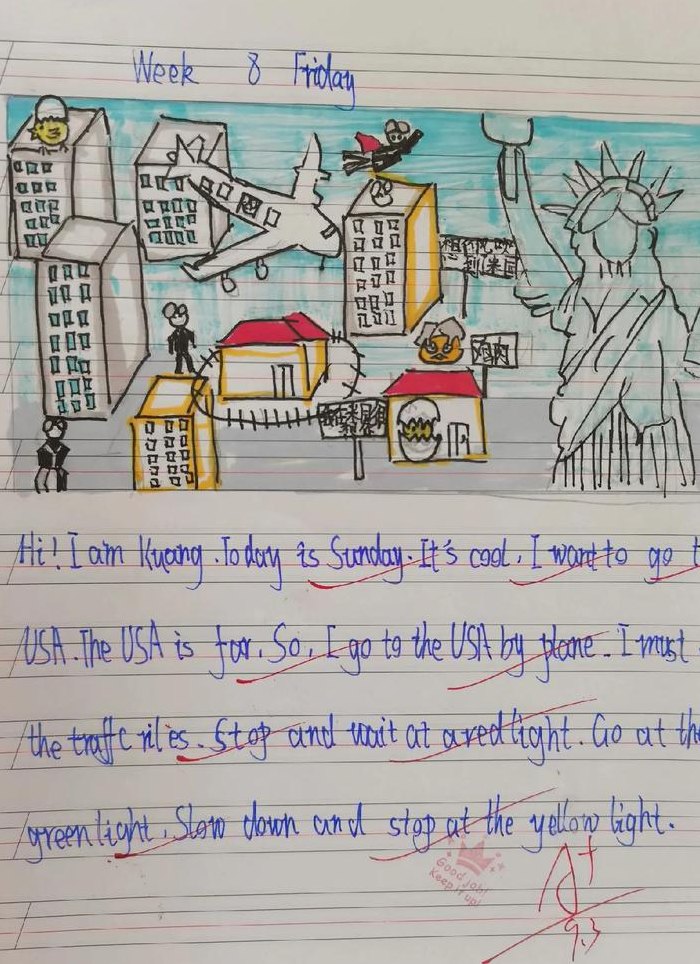 Week 8 Friday
鸡肉
Hi! I am Kuang. Today is Sunday. It's cool. I want to go t
USA. The USA is far. So, I go to the USA by plane. I must
the traffc rlles. Stop and wait at a red light. Go at the
green light. Slow down and stop at the yellow light.
Good job!
Keep it up!
A+
9.3